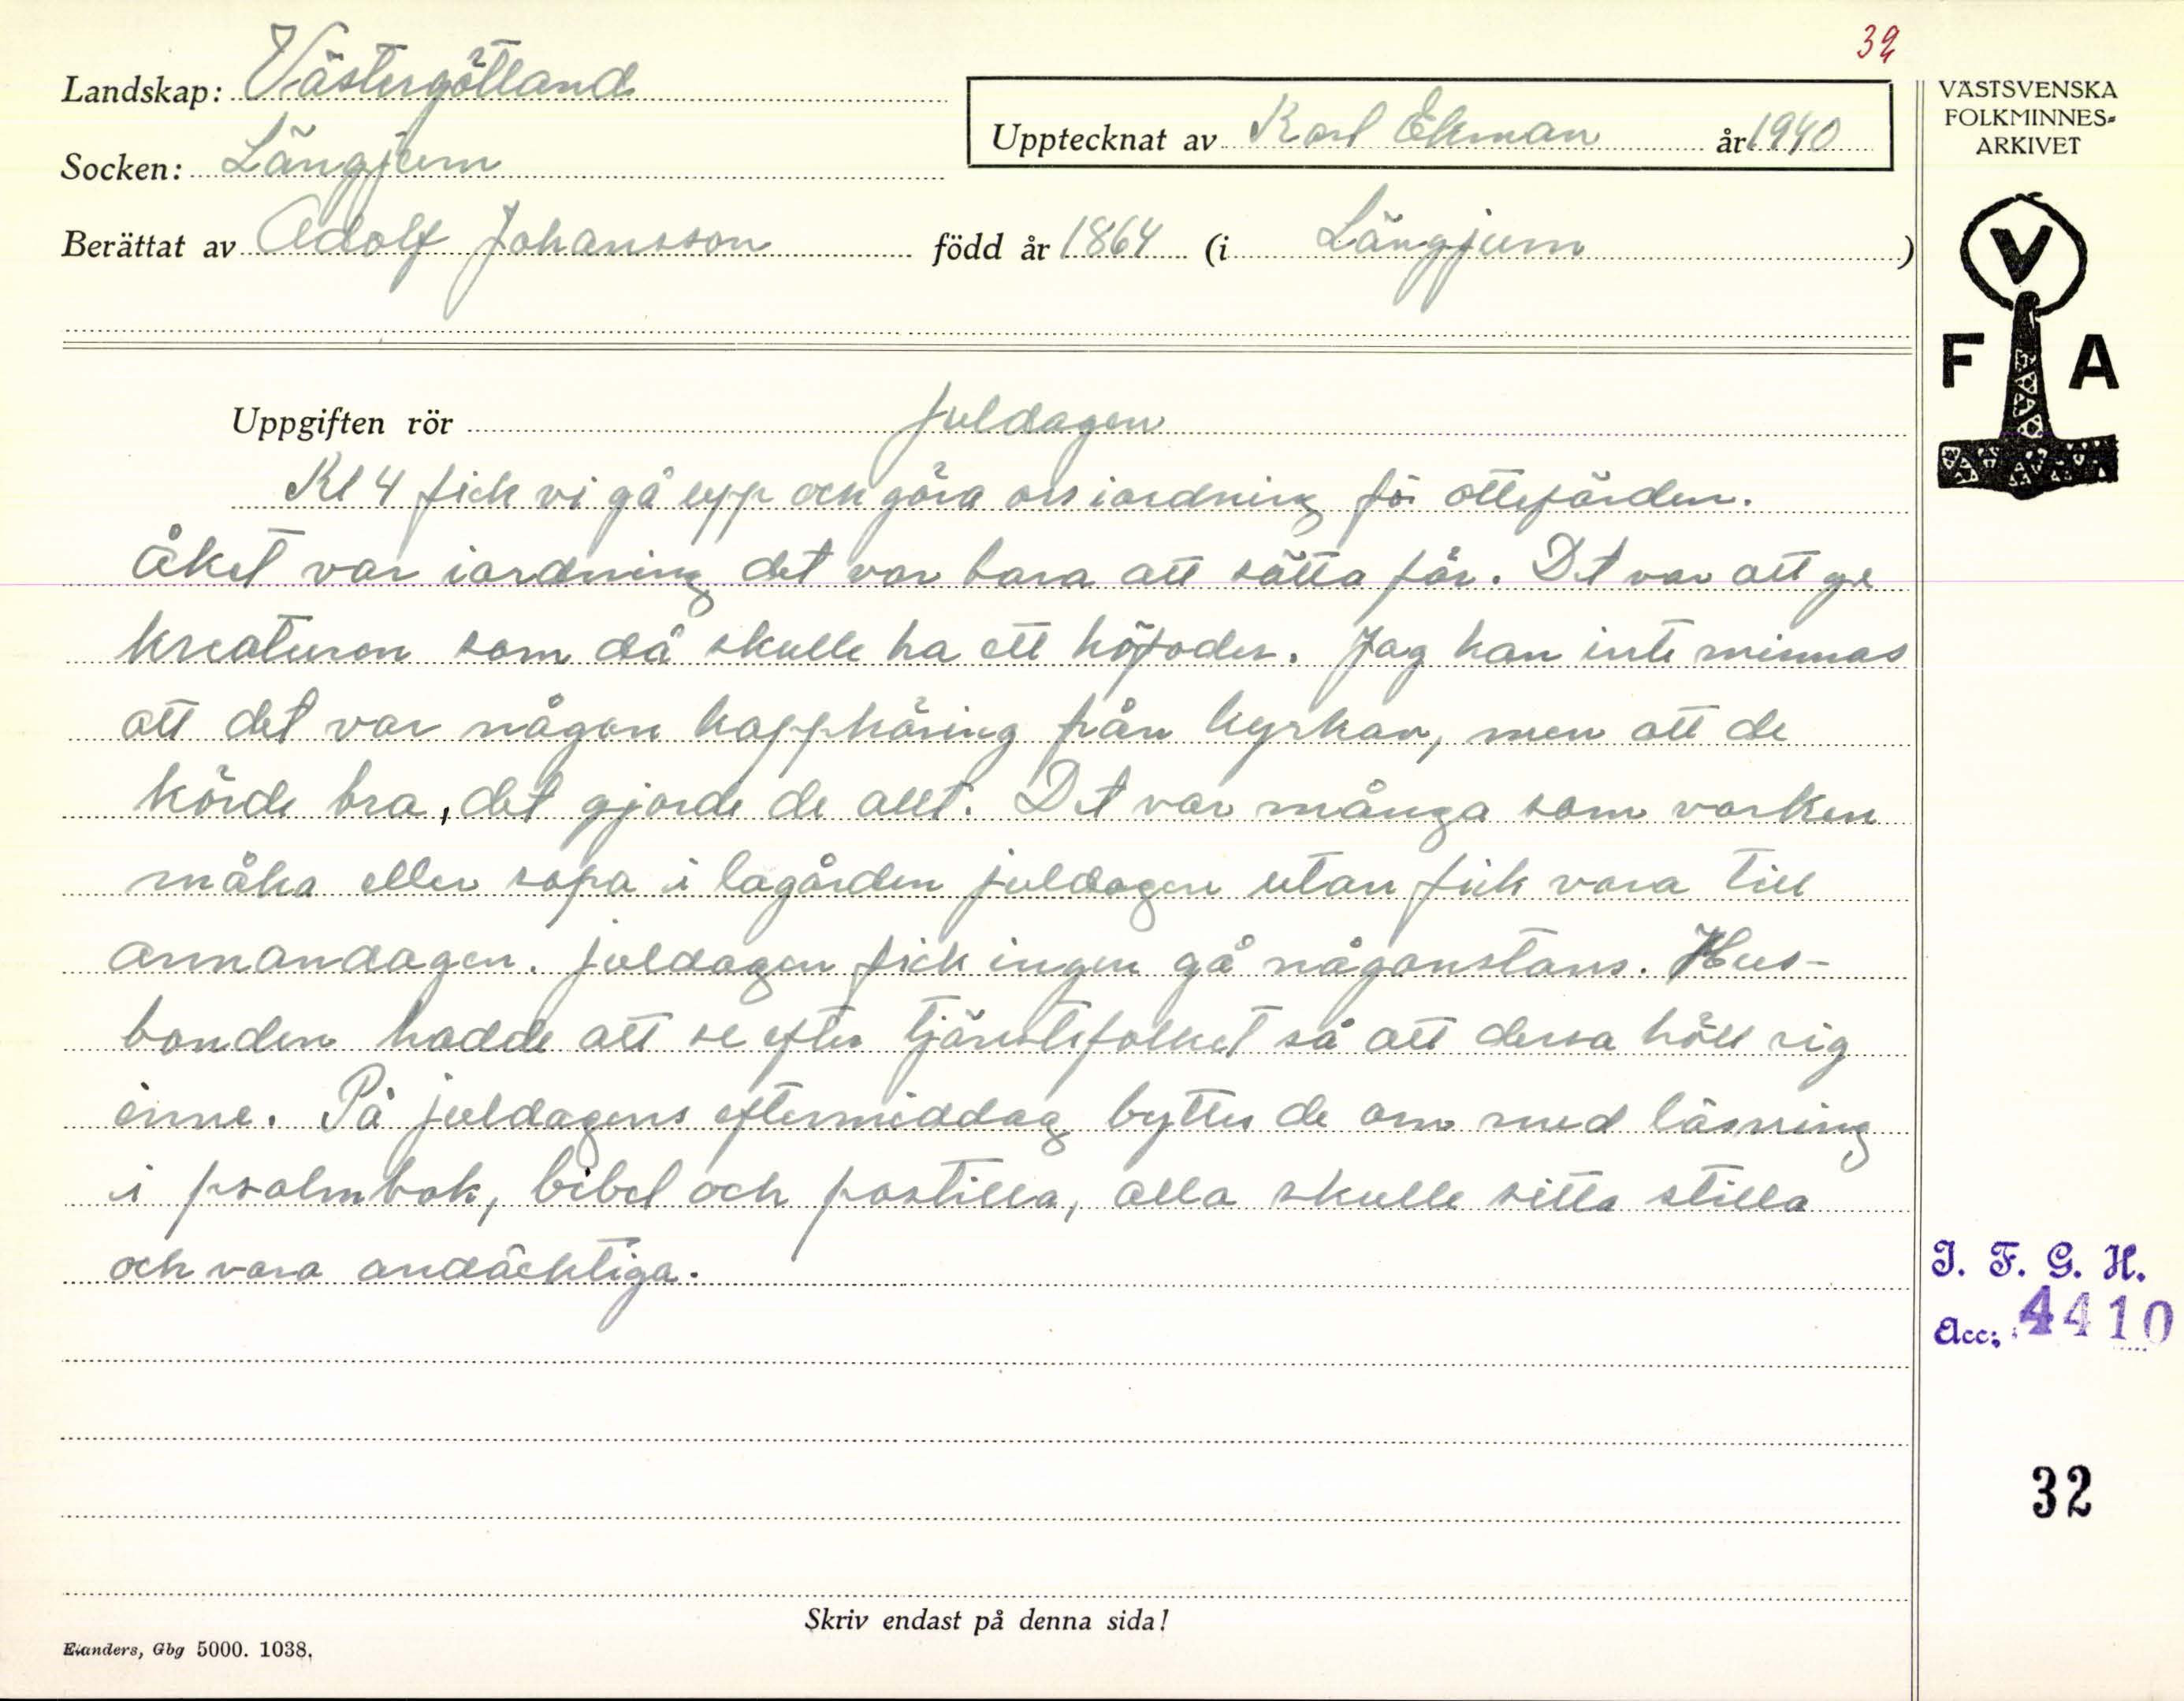 32
Landskap: Västergötland
Upptecknat av Karl Ekman år 1940
Socken: Längjum
Berättat av Adolf Johansson född år 1864 (i Längjum)
VÄSTSVENSKA
FOLKMINNES-
ARKIVET
V
F A
Uppgiften rör Juldagen
Kl 4 fick vi gå upp och göra oss iordning för ottefärden.
Åket var iordning det var bara att sätta för. Det var att ge
kreaturen som då skulle ha ett höfoder. Jag kan inte minnas
att det var någon kappköring från kyrkan, men att de
körde bra, det gjorde de allt. Det var många som varken
måka eller sopa i lagården juldagen utan fick vara till
annandagen. Juldagen fick ingen gå någonstans. Hus-
bonden hadde att se efter tjänstefolket så att dessa höll sig
inne. På juldagens eftermiddag byttes de om med läsning
i psalmbok, bibel och postilla, alla skulle sitta stilla
och vara andäcktiga.
I. F. G. H.
Acc: 4410
32
Skriv endast på denna sida!
Elanders, Gbg 5000. 1038.